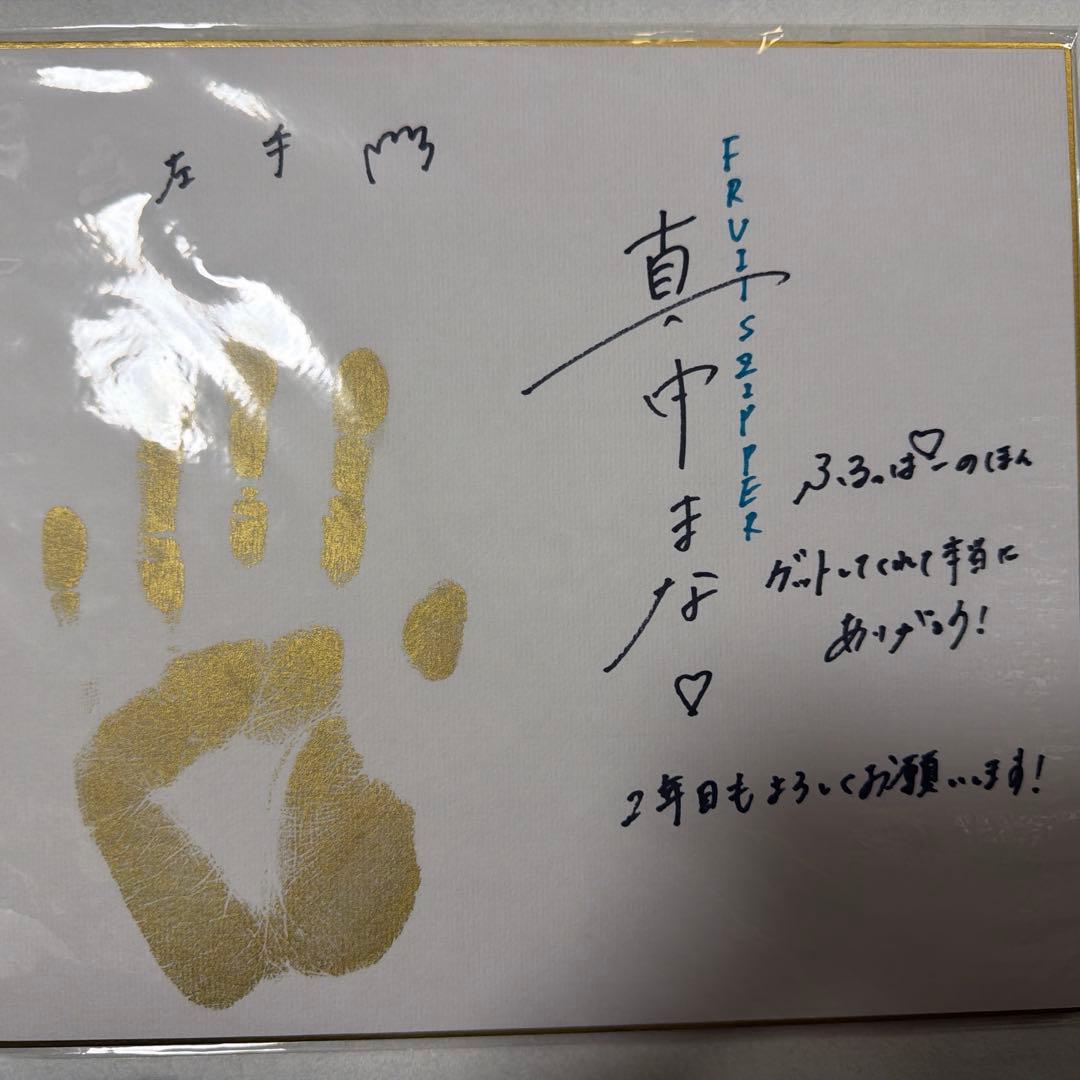 左手
FRUITS ZIPPER
真中まな♡
ふるっぱーのほん♡
ゲットしてくれて本当に
ありがとう!
2年目もよろしくお願いします!